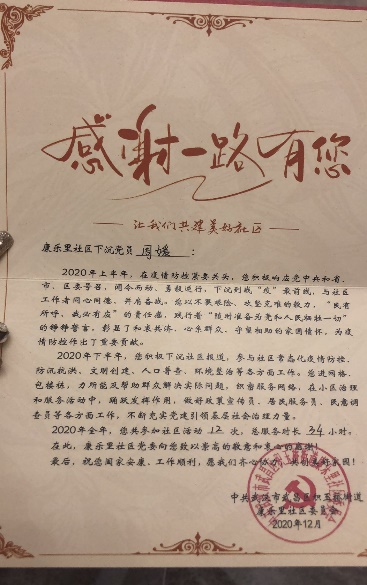 感谢一路有您
让我们共建美好社区
康乐里社区下沉党员 周媛 :
2020年上半年，在疫情防控紧要关头，您积极响应党中央和省、
市、区委号召，闻令而动、勇毅逆行，下沉到战“疫”最前线，与社区
工作者同心同德、并肩奋战。您以不畏艰险、攻坚克难的毅力，“民有
所呼、我必有应”的责任感，践行着“随时准备为党和人民牺牲一切”
的铮铮誓言，彰显了和衷共济、心系群众、守望相助的家国情怀，为疫
情防控作出了重要贡献。
2020年下半年，您积极下沉社区报道，参与社区常态化疫情防控、
防汛抗洪、文明创建、人口普查、环境整治等各方面工作。您进网格、
包楼栋，力所能及帮助群众解决实际问题，织密服务网络，在小区治理
和服务活动中，踊跃发挥作用，做好政策宣传员、居民服务员、民意调
查员等各方面工作，不断充实党建引领基层社会治理力量。
2020年全年，您共参加社区活动 12 次，总服务时长 34 小时。
在此，康乐里社区党委向您致以崇高的敬意和衷心的感谢！
最后，祝您阖家安康、工作顺利，愿我们齐心协力，共创美好家园！
中共武汉市武昌区积玉桥街道
康乐里社区委员会
2020年12月